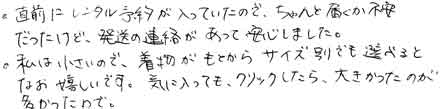 。直前にレンタル予約が入っていたので、ちゃんと届くか不安
だったけど、発送の連絡があって安心しました。
。私は小さいので、着物がもとからサイズ別でも選べると
なお嬉しいです。気に入っても、クリックしたら、大きかったのが
多かったので。